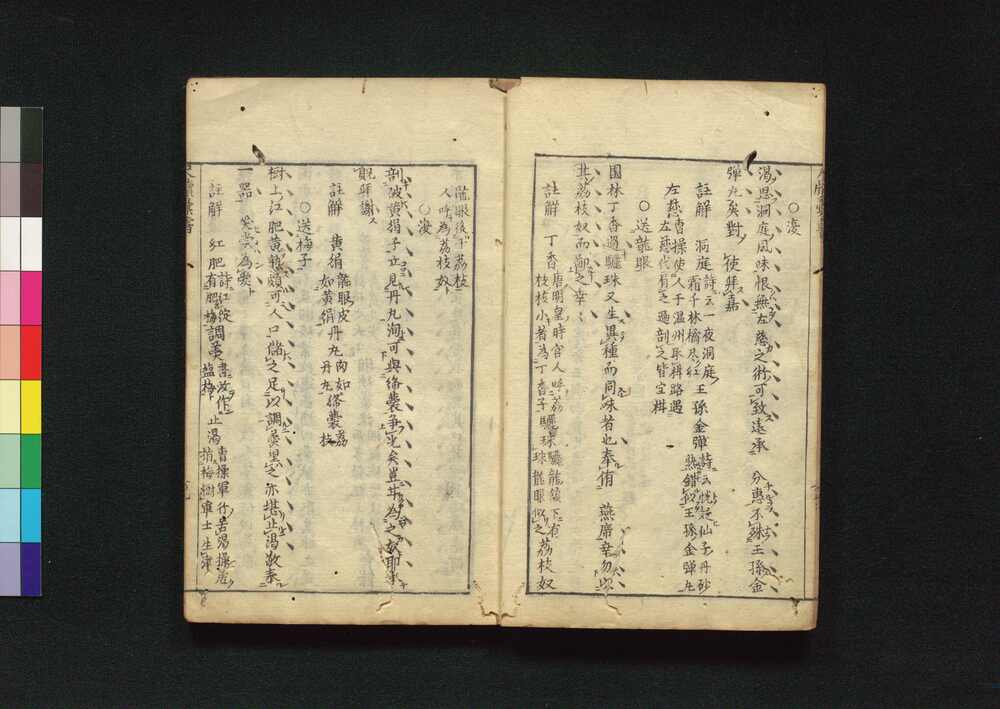 ○復
渴思洞庭風味恨無左慈之術可致遠承 分惠不殊王孫金
彈丸矣對 使拜嘉
註解 洞庭 詩云一夜洞庭霜千林橘尽红 王孫金彈 詩云恍疑仙子丹砂 熟錯認王孫金彈丸
左慈 曹操使人于温州取柑路遇左慈代肩之逓剖之皆空柑
○送龍眼
園林丁香過驪珠又生異種而同味者也奉侑 燕席幸勿以
其荔枝奴而鄙之幸々
註解 丁香 唐明皇時宮人呼荔枝枝小者為丁香子 驪珠 驪龍頷下有珠龍眼似之 荔枝奴
龍眼後于荔枝人呼為荔枝奴
○復
剖破黄絹子立見丹丸洵可與絳囊争光矣豈甘為之奴耶承
貺拜謝
註解 黄絹 龍眼皮如黄絹 丹丸 肉如丹丸 絳囊 荔枝
○送梅子
樹上红肥黄熟頗可人口儲之足以調羹望之亦堪止渴敬奉
一器 笑嘗為愛
註解 红肥 詩红綻有肥梅 調羹 書汝作塩梅 止渴 曹操軍行苦渴操 指梅樹軍士生津